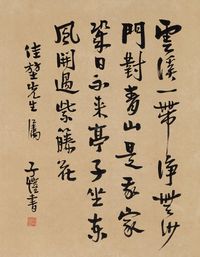 雲溪一帶浄無沙
門對青山是我家
幾日不來亭子坐東
風開過紫藤花
佳塋先生屬
子愷書